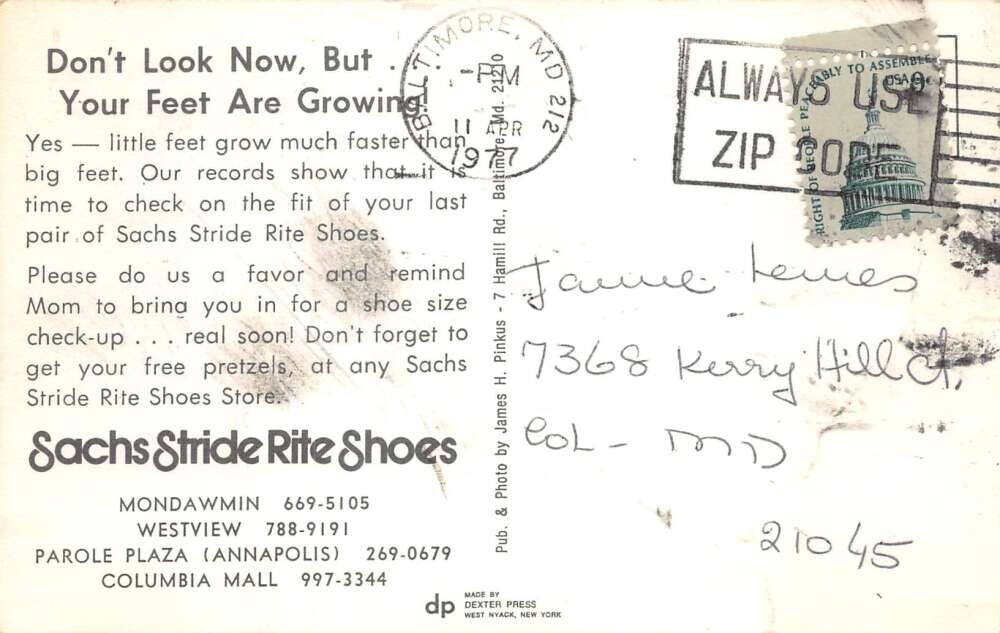 Don't Look Now, But . .
Your Feet Are Growing
Yes — little feet grow much faster than
big feet. Our records show that it is
time to check on the fit of your last
pair of Sachs Stride Rite Shoes.
Please do us a favor and remind
Mom to bring you in for a shoe size
check-up . . . real soon! Don't forget to
get your free pretzels, at any Sachs
Stride Rite Shoes Store.
Sachs Stride Rite Shoes
MONDAWMIN 669-5105
WESTVIEW 788-9191
PAROLE PLAZA (ANNAPOLIS) 269-0679
COLUMBIA MALL 997-3344
Pub. & Photo by James H. Pinkus - 7 Hamill Rd., Baltimore, Md. 21210
dp
MADE BY
DEXTER PRESS
WEST NYACK, NEW YORK
BALTIMORE, MD 212
PM
11 APR
1977
ALWAYS USE
ZIP CODE
RIGHT OF PEOPLE PEACEABLY TO ASSEMBLE
USA 9c
7368 Kerry Hill Ct.
Col - MD
21045